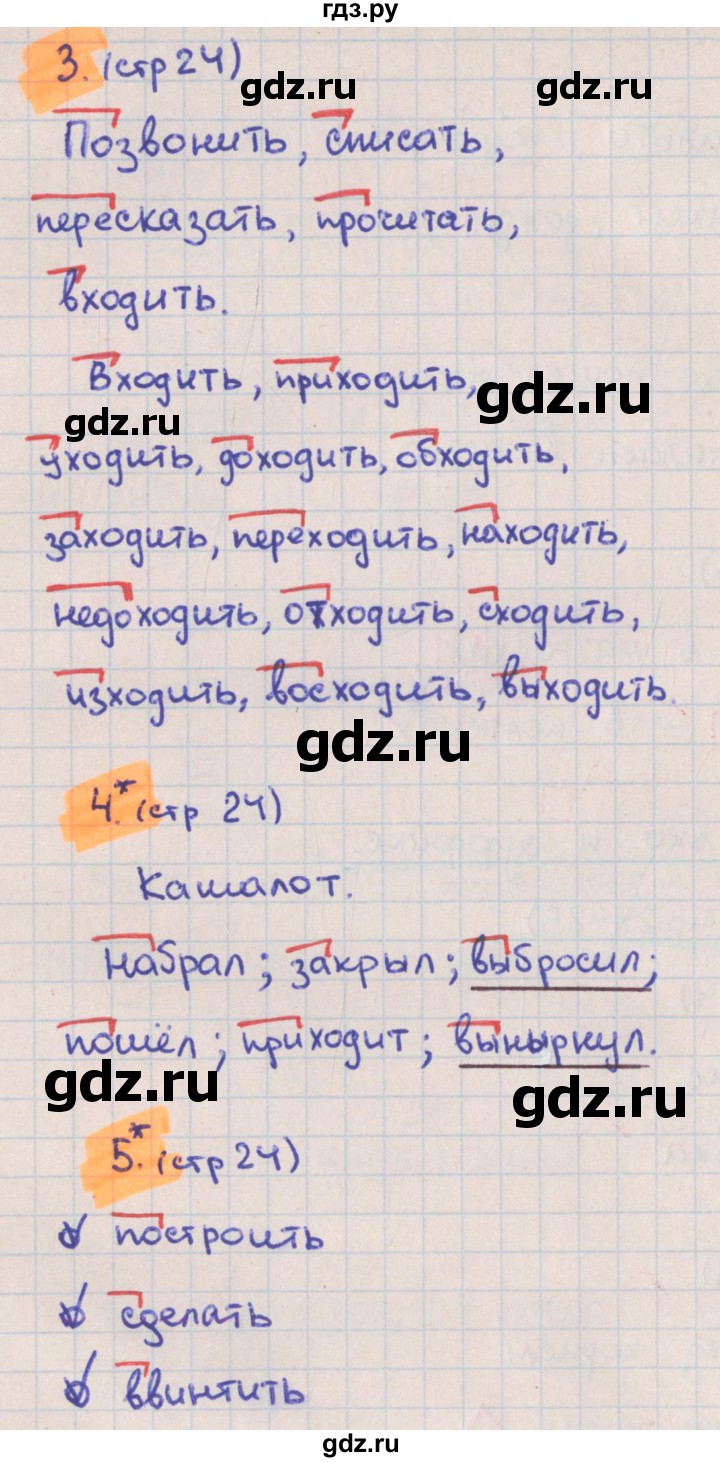 гдз.ру
3. (стр 24)
gdz.ru gdz.ru
Позвонить, списать,
пересказать, прочитать,
входить.
Входить, приходить,
gdz.ru
gdz.ru
уходить, доходить, обходить,
заходить, переходить, находить,
недоходить, отходить, сходить,
изходить, восходить, выходить.
gdz.ru
4.* (стр 24)
Кашалот.
Набрал; закрыл; выбросил;
пошёл; приходит; вынырнул.
gdz.ru gdz.ru
5.* (стр 24)
построить
сделать
ввинтить
gdz.ru